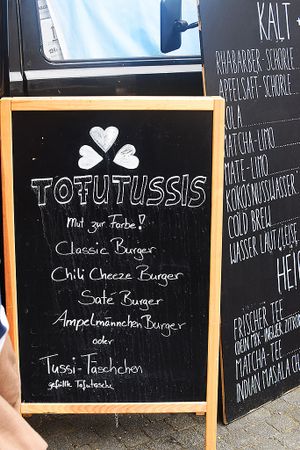 TOFUTUSSIS
Mut zur Farbe!
Classic Burger
Chili Cheeze Burger
Saté Burger
Ampelmännchen Burger
oder
Tussi-Täschchen
gefüllte Tofutasche
KALT
RHABARBER-SCHORLE
APFELSAFT-SCHORLE
COLA
MATCHA-LIMO
MATE-LIMO
KOKOSNUSSWASSER
COLD BREW
WASSER LAUT/LEISE
HEI
FRISCHER TEE
DEIN MIX-INGWER ZITRON
MATCHA-TEE
INDIAN MASALA CH